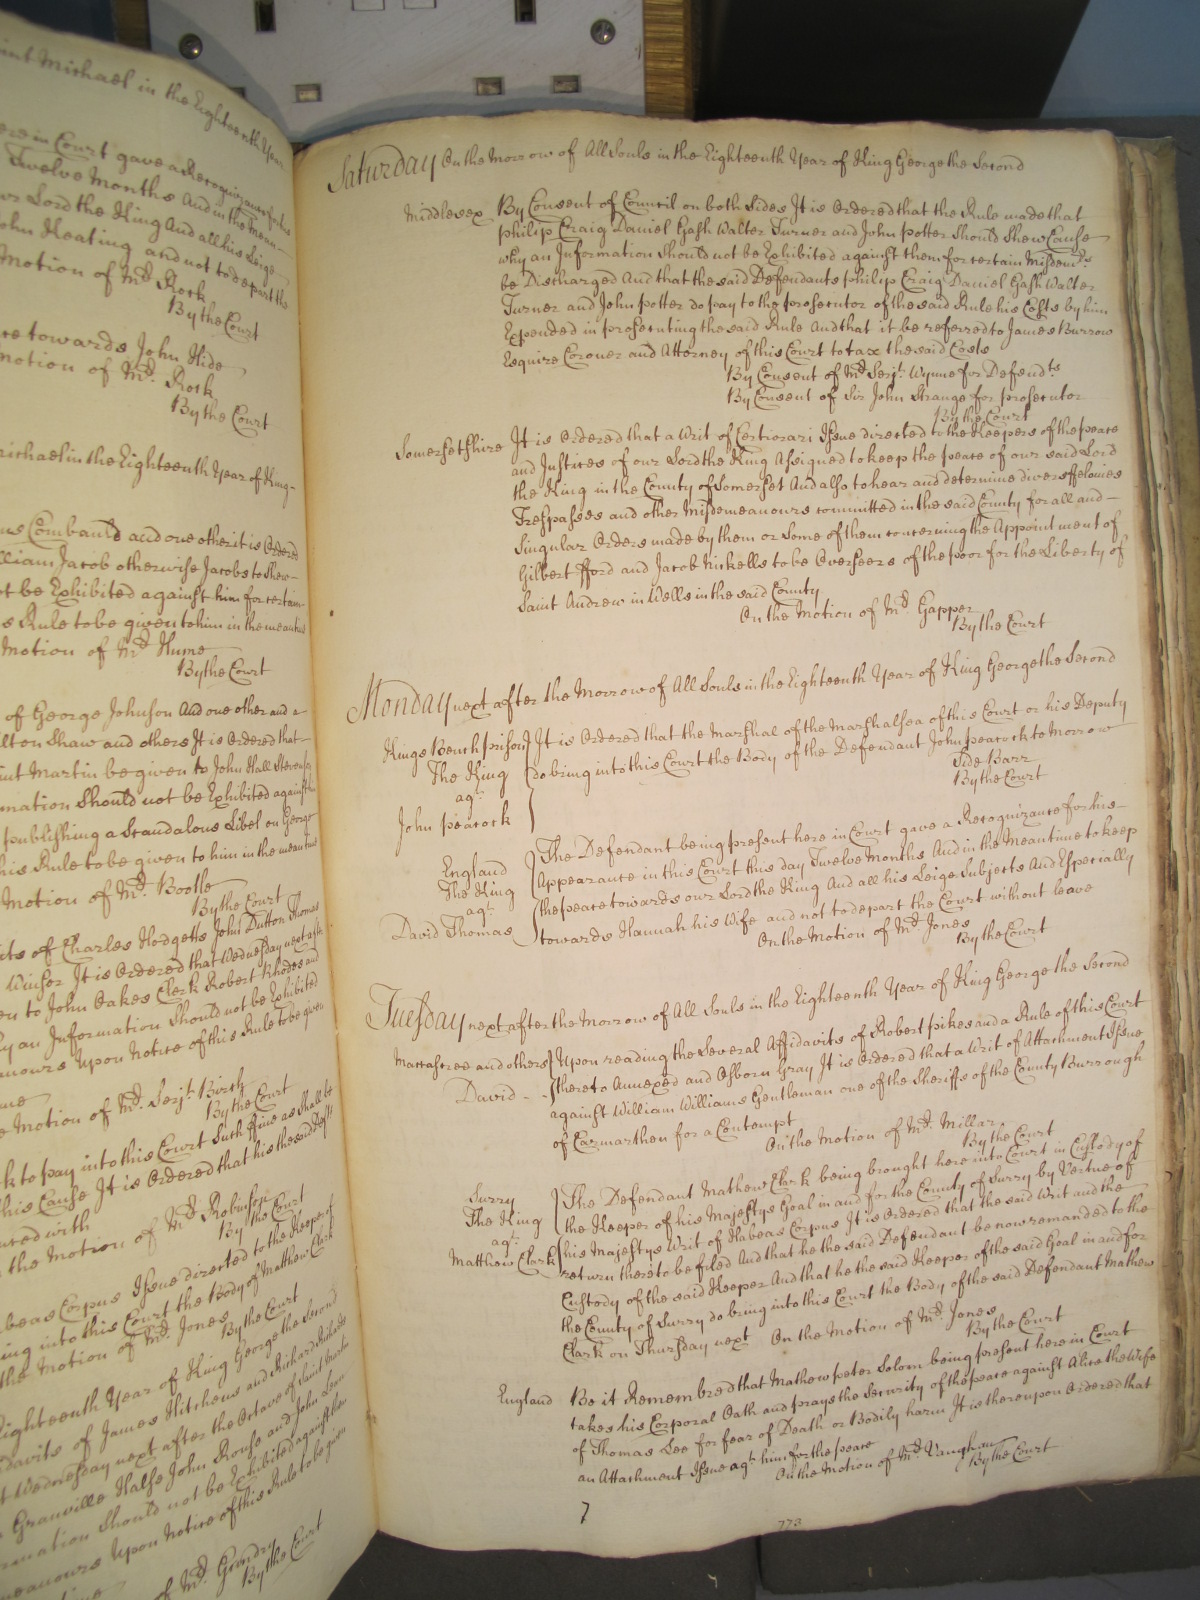 Saint Michael in the Eighteenth Year
here in Court gave a Recognizance for his
Twelve Months And in the Mean
our Lord the King And all his Leige
John Keating and not to depart the
Motion of Mr. Rock
By the Court
towards John Hide
Motion of Mr. Rock
By the Court
Michael in the Eighteenth Year of King
Combauld and one other it is Ordered
William Jacob otherwise Jacobs to Shew
not be Exhibited against him for certain
Rule to be given to him in the mean time
Motion of Mr. Hume
By the Court
of George Johnson And one other and a
Shaw and others It is Ordered that
Saint Martin be given to John Hall Stevenson
Information Should not be Exhibited against him
publishing a Scandalous Libel on George
this Rule to be given to him in the mean time
Motion of Mr. Bootle
By the Court
of Charles Hodgetts John Dutton Thomas
Winser It is Ordered that Wednesday next after
to John Oakes Clerk Robert Rhodes and
why an Information Should not be Exhibited
upon Notice of this Rule to be given
Motion of Mr. Serjt. Birch
By the Court
to pay into this Court Such ffine as Shall be
this Cause It is Ordered that his the said
with
the Motion of Mr. Robinson
By the Court
Habeas Corpus Issue directed to the Keeper of
bring into this Court the Body of Matthew Clark
the Motion of Mr. Jones
By the Court
Eighteenth Year of King George the Second
Affidavits of James Hitchens and Richard Richards
Wednesday next after the Octave of Saint Martin
Granville Halse John Rouse and John Lean
Information Should not be Exhibited against them
upon Notice of this Rule to be given
of Mr. Grundry
By the Court
Saturday On the Morrow of All Souls in the Eighteenth Year of King George the Second
Middlesex By Consent of Council on both Sides It is Ordered that the Rule made that
Philip Craig Daniel Gash Walter Turner and John Potter Should Shew Cause
why an Information Should not be Exhibited against them for certain Misdemrs.
be Discharged And that the said Defendants Philip Craig Daniel Gash Walter
Turner and John Potter do pay to the prosecutor of the said Rule his Costs by him
Expended in prosecuting the said Rule And that it be referred to James Burrow
Esquire Coroner and Attorney of this Court to tax the said Costs
By Consent of Mr. Serjt. Wynne for Defendts.
By Consent of Sir John Strange for prosecutor
By the Court
Somersetshire It is Ordered that a Writ of Certiorari Issue directed to the Keepers of the peace
and Justices of our Lord the King Assigned to keep the peace of our said Lord
the King in the County of Somerset And also to hear and determine divers ffelonies
Trespasses and other Misdemeanours committed in the said County for all and
Singular Orders made by them or Some of them concerning the Appointment of
Gilbert fford and Jacob Nickells to be Overseers of the poor for the Liberty of
Saint Andrew in Wells in the said County
On the Motion of Mr. Gapper
By the Court
Monday next after the Morrow of All Souls in the Eighteenth Year of King George the Second
Kings Bench prison It is Ordered that the Marshal of the Marshalsea of this Court or his Deputy
The King do bring into this Court the Body of the Defendant John Peacock to Morrow
agt.
John Peacock
Side Barr
By the Court
England The Defendant being present here in Court gave a Recognizance for his
The King Appearance in this Court this day Twelve Months And in the Mean time to keep
agt. the peace towards our Lord the King And all his Leige Subjects And Especially
David Thomas towards Hannah his Wife and not to depart the Court without leave
On the Motion of Mr. Jones
By the Court
Tuesday next after the Morrow of All Souls in the Eighteenth Year of King George the Second
Mactasree and others Upon reading the Several Affidavits of Robert Pikes and a Rule of this Court
David thereto Annexed and Osborn Gray It is Ordered that a Writ of Attachment Issue
against William Williams Gentleman one of the Sheriffs of the County Burrough
of Carmarthen for a Contempt
On the Motion of Mr. Millar
By the Court
Surry The Defendant Mathew Clark being brought here into Court in Custody of
The King the Keeper of his Majestys Goal in and for the County of Surry by Vertue of
agt. his Majestys Writ of Habeas Corpus It is Ordered that the said Writ and the
Matthew Clark return thereto be filed And that he the said Defendant be now remanded to the
Custody of the said Keeper And that he the said Keeper of the said Goal in and for
the County of Surry do bring into this Court the Body of the said Defendant Mathew
Clark on Thursday next On the Motion of Mr. Jones
By the Court
England Be it Remembred that Mathew Peter Solom being present here in Court
takes his Corporal Oath and prays the Security of the peace against Alice the Wife
of Thomas Lee for fear of Death or Bodily harm It is thereupon Ordered that
an Attachment Issue agt. him for the peace
On the Motion of Mr. Vaughan
By the Court
7
773